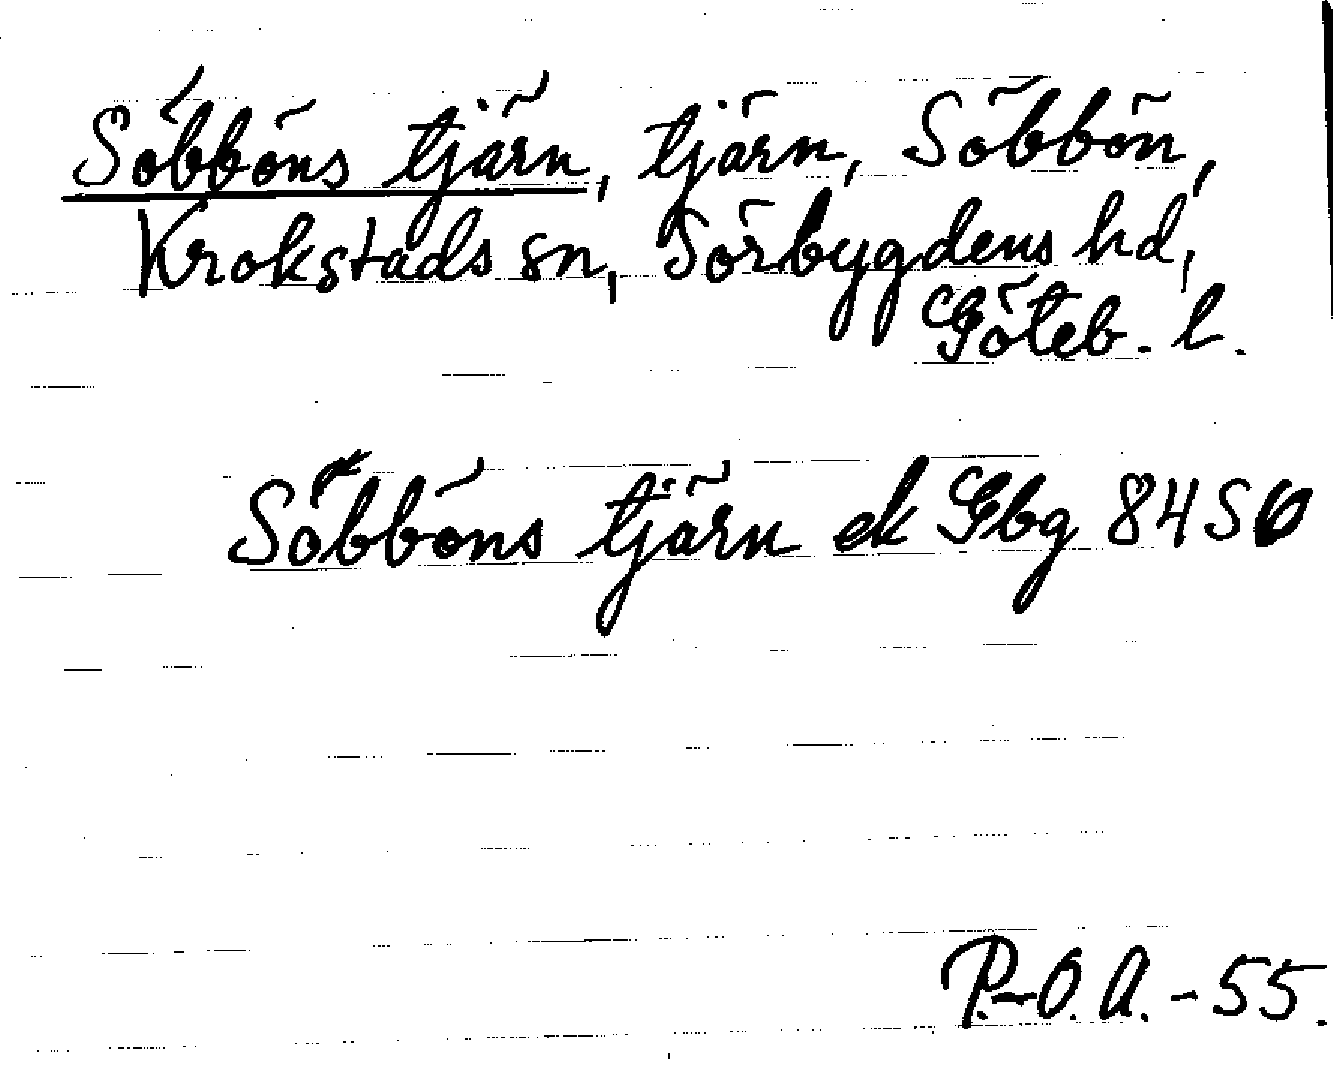 Söbböns tjärn, tjärn, Söbbön,
Krokstads sn, Sörbygdens hd,
Göteb. l.
Söbböns tjärn ek Gbg 84 S6
P.-O. A. - 55.